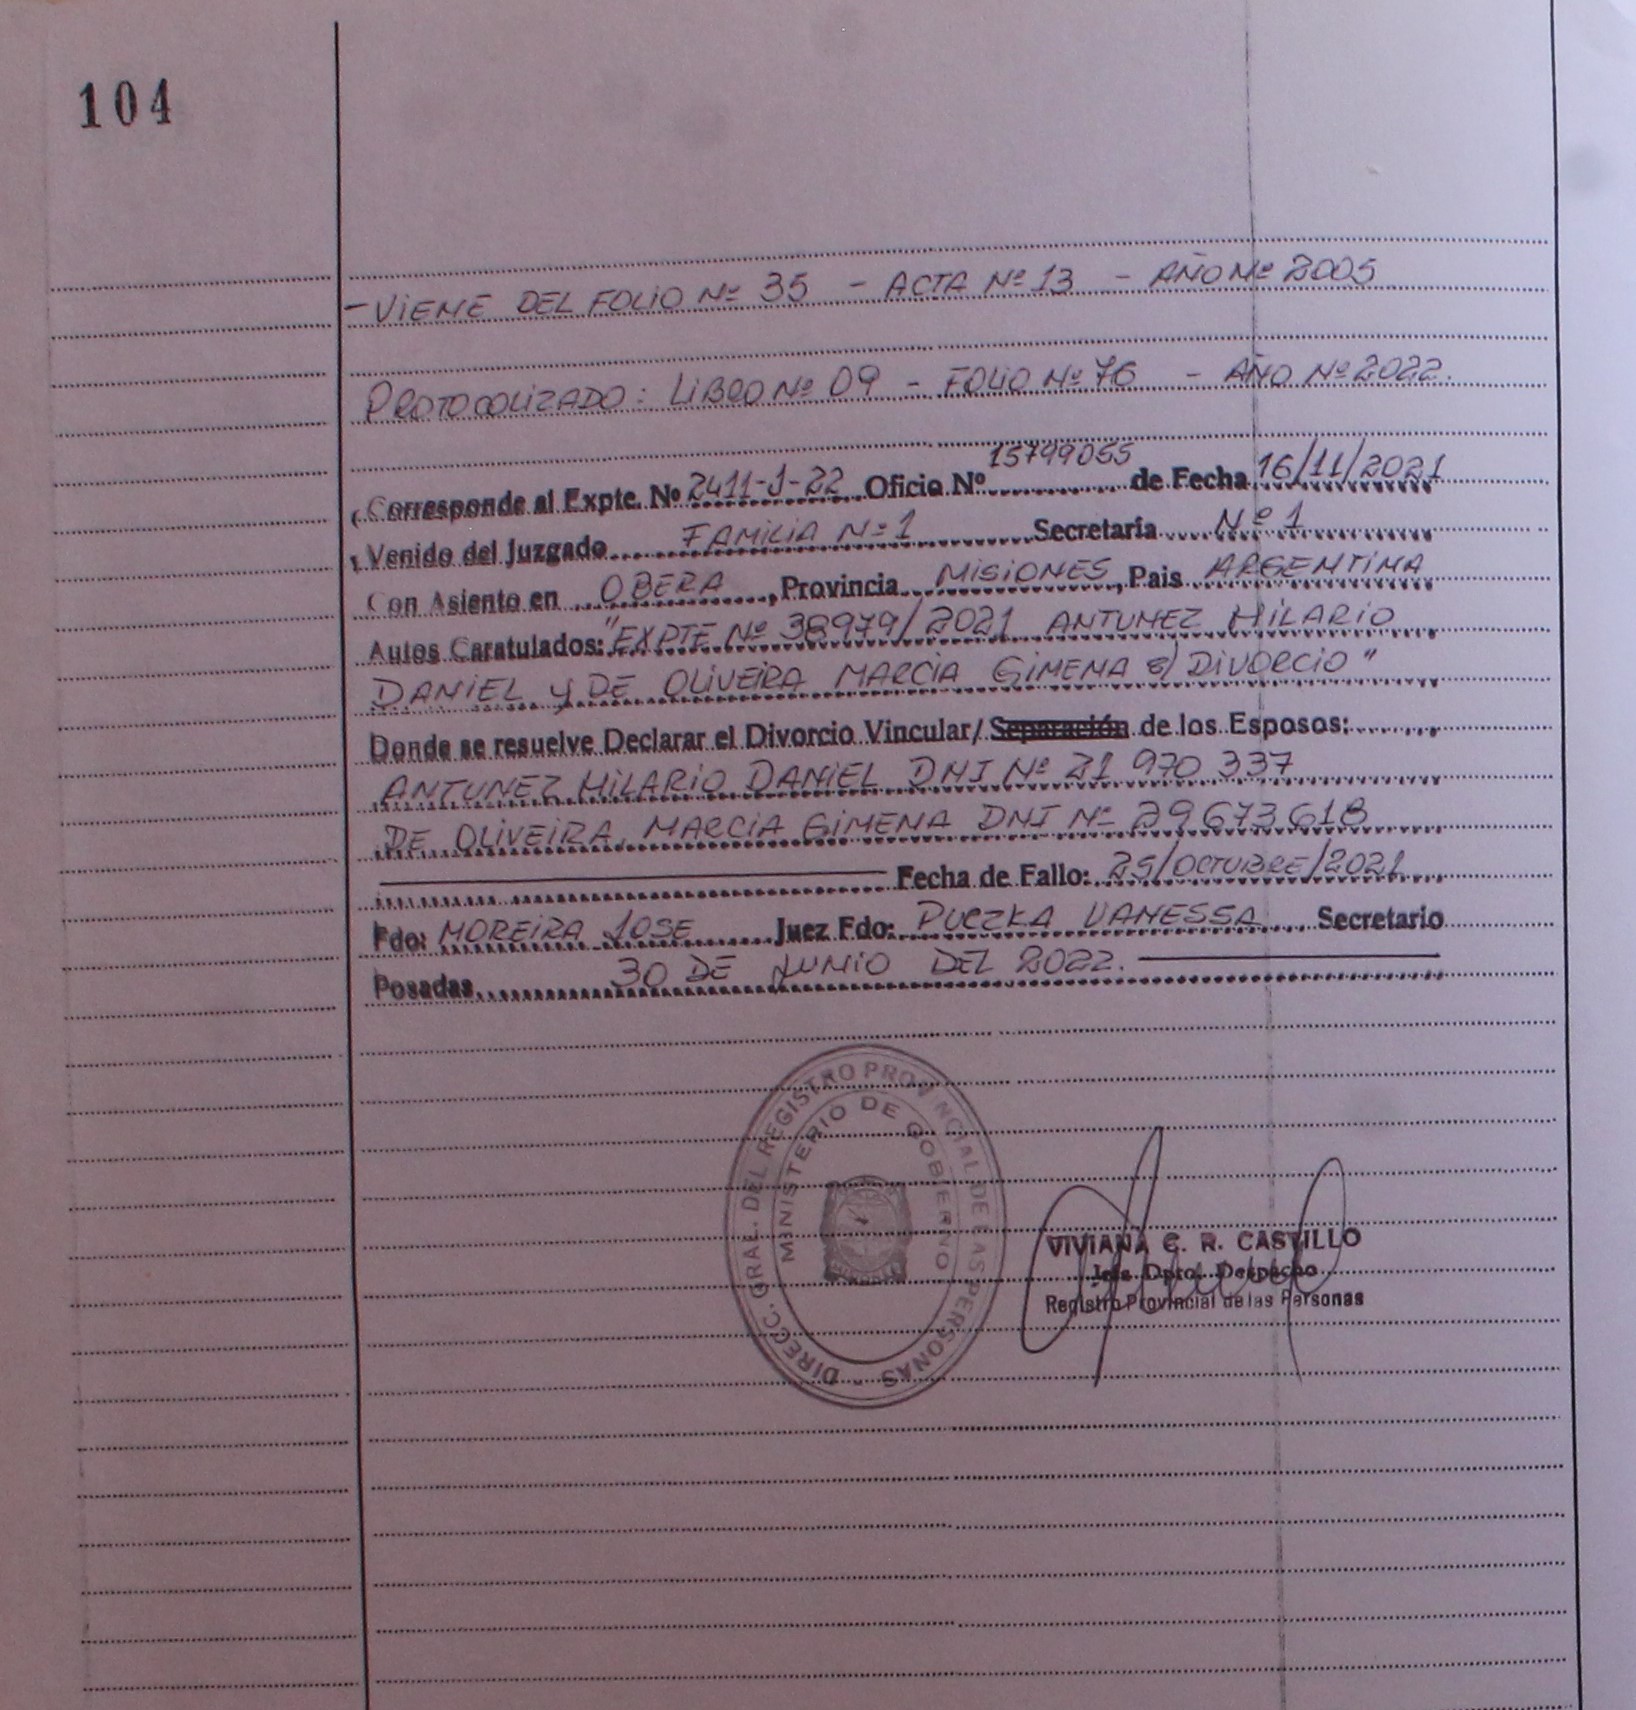 104
- VIENE DEL FOLIO Nº 35 - ACTA Nº 13 - AÑO Nº 2005
PROTOCOLIZADO: LIBRO Nº 09 - FOLIO Nº 76 - AÑO Nº 2022.
Corresponde al Expte. Nº 2411-J-22 Oficio Nº 15799055 de Fecha 16/11/2021
Venido del Juzgado FAMILIA Nº 1 Secretaría Nº 1
Con Asiento en OBERA, Provincia MISIONES, Pais ARGENTINA
Autos Caratulados: "EXPTE Nº 38979/2021 ANTUNEZ HILARIO
DANIEL y DE OLIVEIRA MARCIA GIMENA s/ DIVORCIO"
Donde se resuelve Declarar el Divorcio Vincular/ Separación de los Esposos:
ANTUNEZ HILARIO DANIEL DNI Nº 21 970 337
DE OLIVEIRA, MARCIA GIMENA DNI Nº 29673618
Fecha de Fallo: 25/OCTUBRE/2021
Fdo: MOREIRA JOSE Juez Fdo: PUCZKA VANESSA Secretario
Posadas, 30 DE JUNIO DEL 2022.
DIRECC. GRAL. DEL REGISTRO PROVINCIAL DE LAS PERSONAS -
MINISTERIO DE GOBIERNO
VIVIANA C. R. CASTILLO
Jefa Dpto. Despacho
Registro Provincial de las Personas